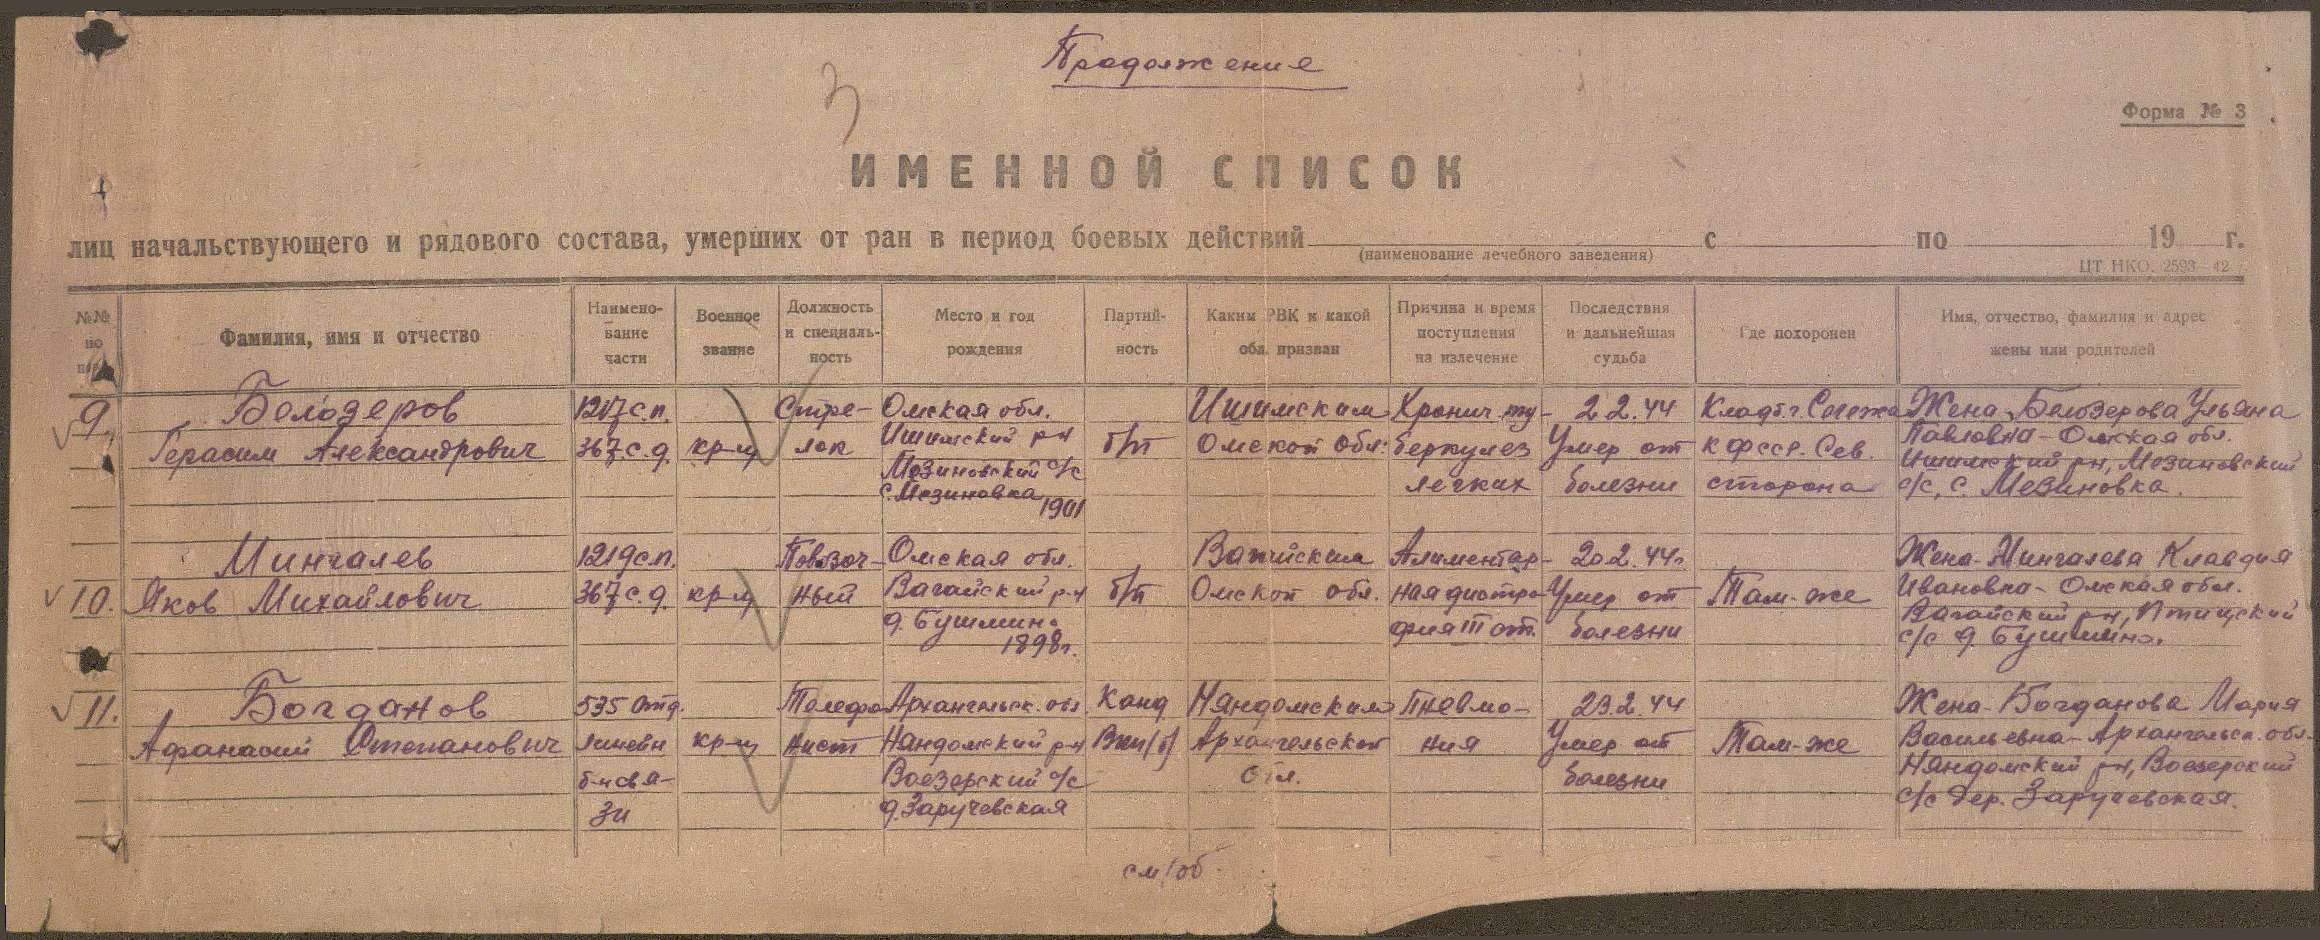 Продолжение
3
Форма № 3
ИМЕННОЙ СПИСОК
лиц начальствующего и рядового состава, умерших от ран в период боевых действий с по 19 г.
(наименование лечебного заведения)
ЦТ НКО. 2593—42
№№ по пор.
Фамилия, имя и отчество
Наименование части
Военное звание
Должность и специальность
Место и год рождения
Партийность
Каким РВК и какой обл. призван
Причина и время поступления на излечение
Последствия и дальнейшая судьба
Где похоронен
Имя, отчество, фамилия и адрес жены или родителей
9. Белозеров Герасим Александрович
1217 с.п. 367 с.д.
кр-ц
Стрелок
Омская обл. Ишимский р-н Мезиновский с/с с. Мезиновка 1901
б/п
Ишимским Омской обл.
Хронич. туберкулез легких
2.2.44 Умер от болезни
Кладб. г. Сегежа КФССР. Сев. сторона
Жена Белозерова Ульяна
Павловна - Омская обл.
Ишимский р-н, Мезиновский
с/с, с. Мезиновка.
10. Мингалев Яков Михайлович
1219 с.п. 367 с.д.
кр-ц
Повозочный
Омская обл. Вагайский р-н д. Бушмина 1898г.
б/п
Вагайским Омской обл.
Алиментарная дистрофия III ст.
20.2.44г. Умер от болезни
Там-же
Жена - Мингалева Клавдия
Ивановна - Омская обл.
Вагайский р-н, Птицкий
с/с д. Бушмина.
11. Богданов Афанасий Степанович
535 Отд. линейн б-н связи
кр-ц
Телефонист
Архангельск. обл. Няндомский р-н Воезерский с/с д. Заручевская
Канд ВКП(б)
Няндомским Архангельской обл.
Пневмония
23.2.44 Умер от болезни
Там-же
Жена - Богданова Мария
Васильевна - Архангельск. обл.
Няндомский р-н, Воезерский
с/с дер. Заручевская.
см/об